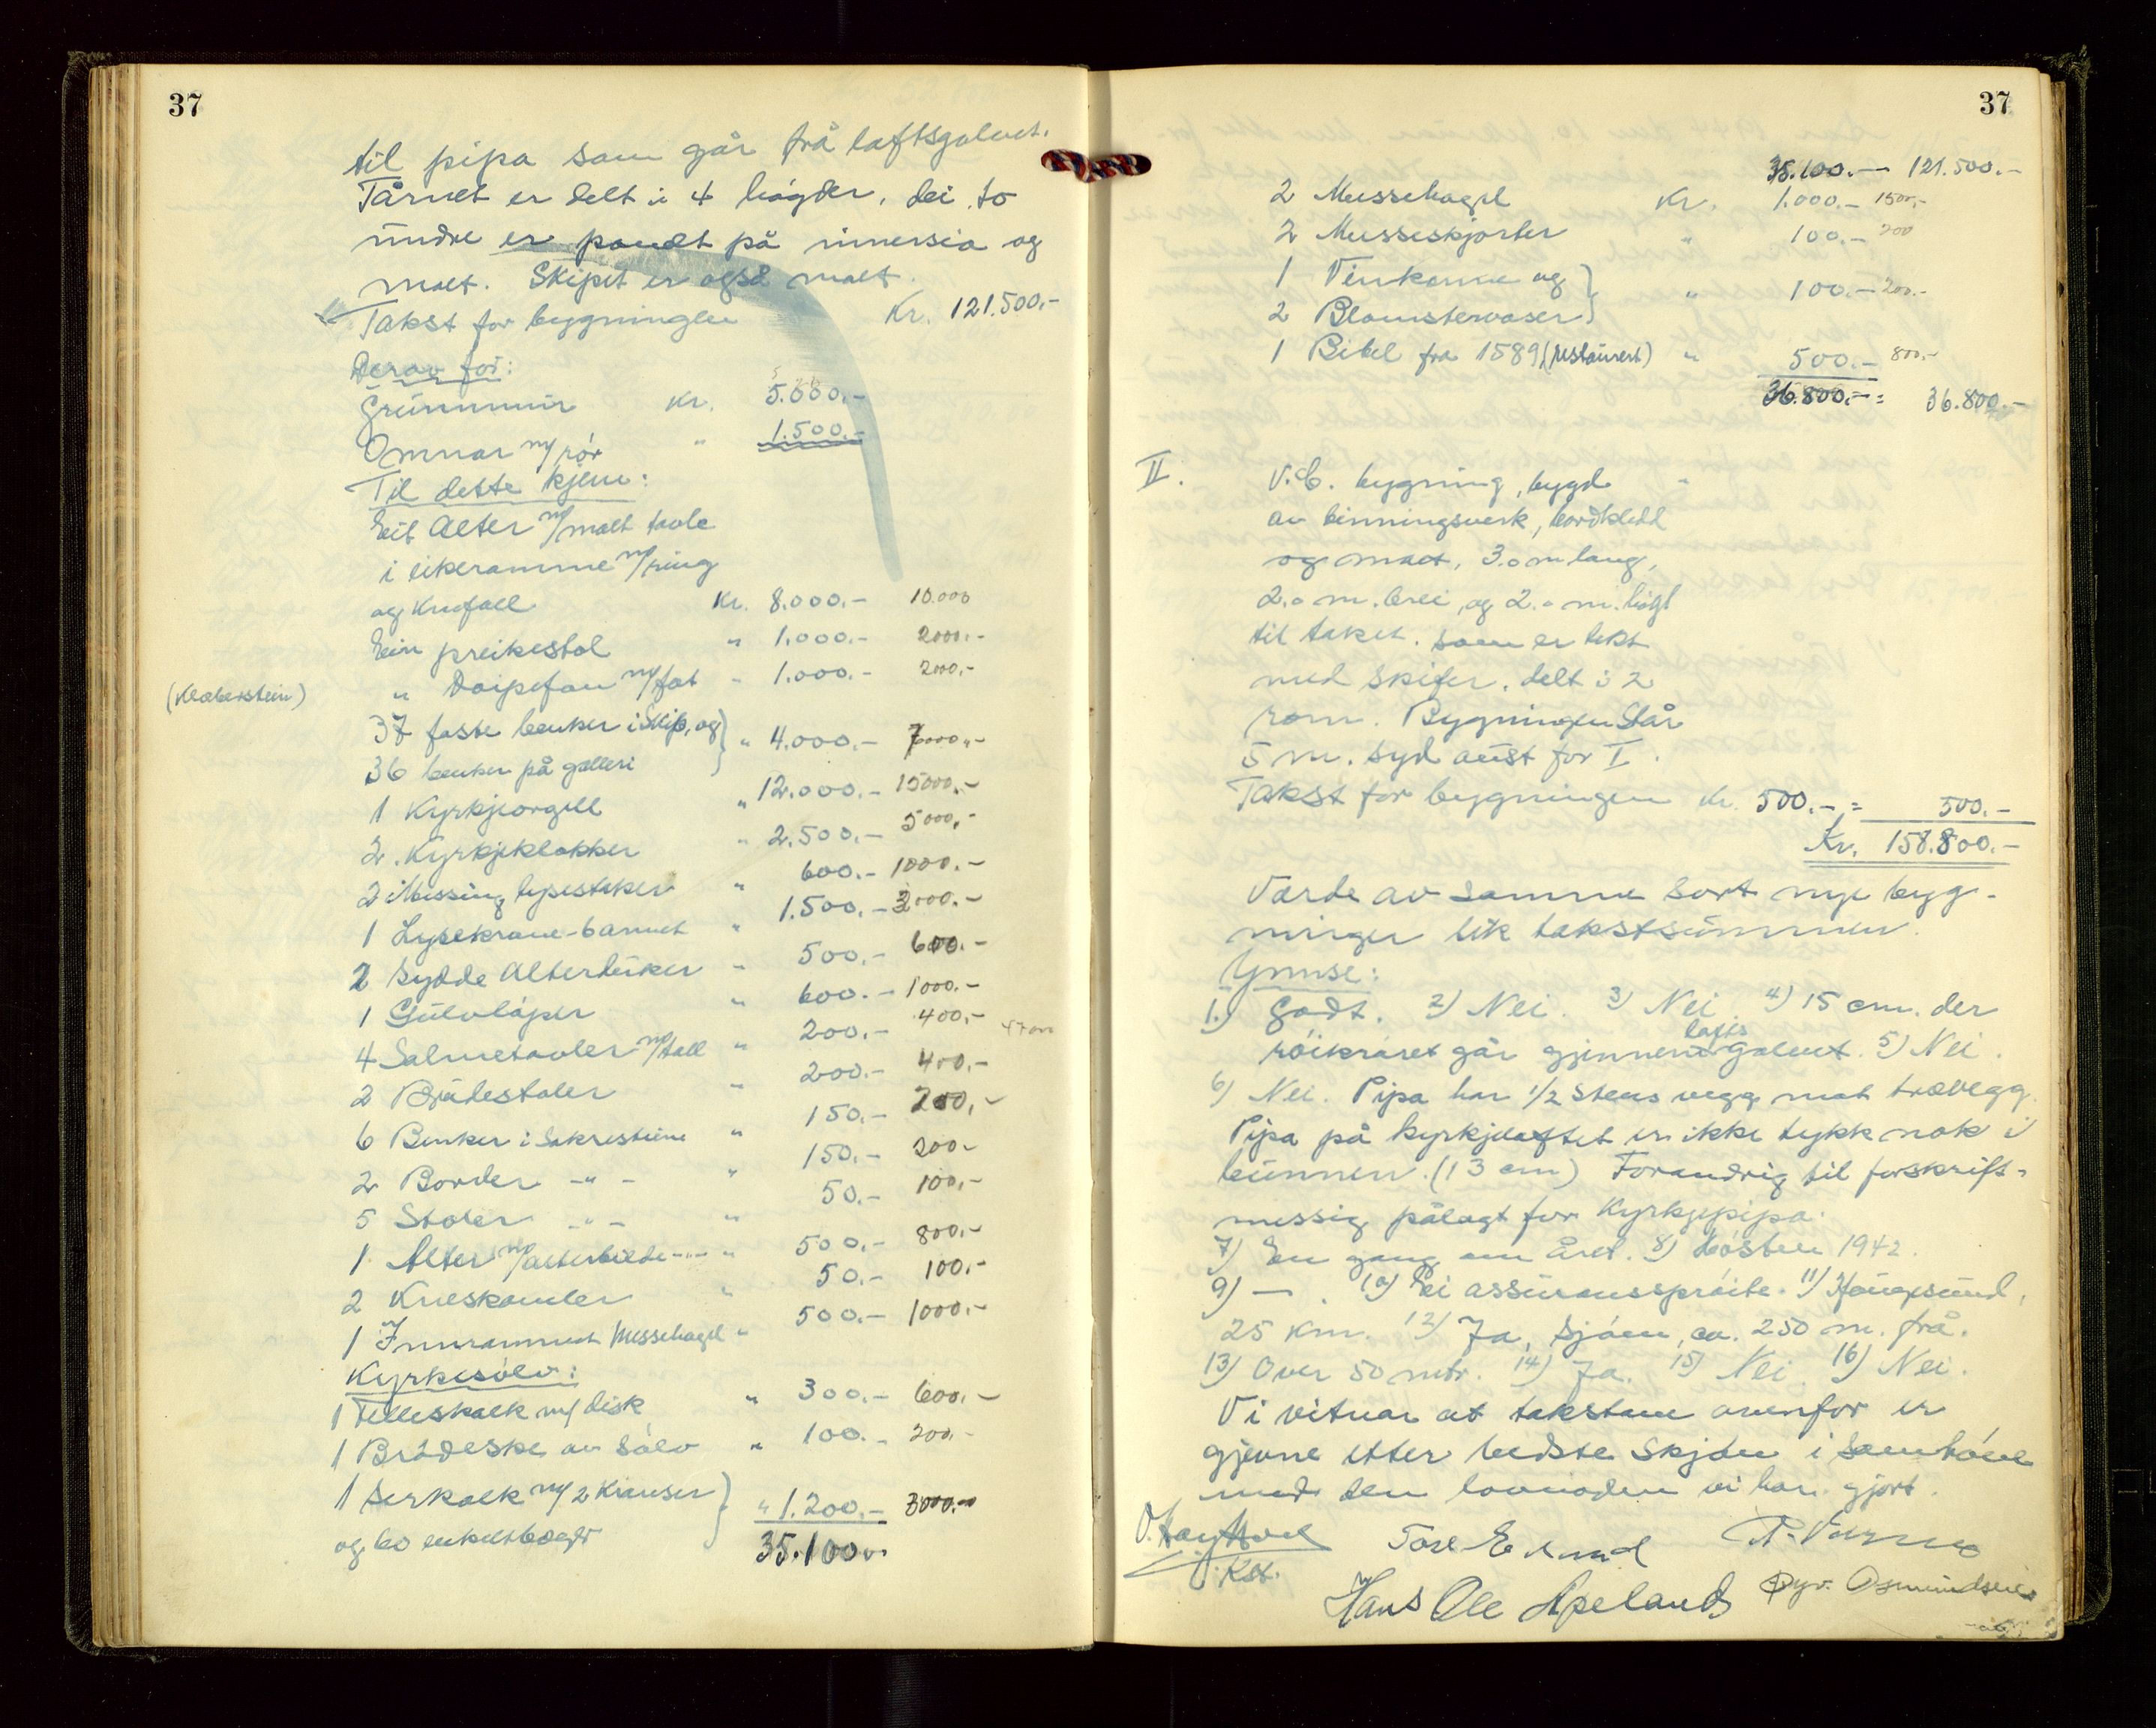 37
til pipa som går frå loftsgolvet.
Tårnet er delt i 4 høgder, dei to
undre er panelt på innersia og
malt. Skipet er også malt.
Takst for bygningen Kr. 121.500.-
Derav for:
Grunnmur Kr. 5.000.-
Omnar m/rør " 1.500.-
Til dette kjem:
Eit Alter m/malt tavle
i eikeramme m/ring
og knefall Kr. 8.000.- 10.000
Ein preikestol " 1.000.- 2000.-
(Kleberstein) " Døipefon m/fat " 1.000.- 2000.-
37 faste benker i Skip, og
36 benker på galleri " 4.000.- 7000.-
1 Kyrkjeorgell " 12.000.- 15000.-
2 Kyrkjeklokker " 2.500.- 5000.-
2 Messing lysestaker " 600.- 1000.-
1 Lysekrone-6 armet " 1.500.- 3000.-
2 Sydde Alterduker " 500.- 600.-
1 Gulvløper " 600.- 1000.-
4 Salmetavler m/tall " 200.- 400.-
2 Brudestoler " 200.- 400.-
6 Benker i Sakresteine " 150.- 200,-
2 Border -"- " 150.- 200-
5 Stoler -"- " 50.- 100.-
1 Alter m/alterbilde -"- " 500.- 800.-
2 Kneskamler " 50.- 100.-
1 Innrammet Messehagel " 500.- 1000.-
Kyrkesølv:
1 Felleskalk m/disk " 300.- 600.-
1 Brødeske av sølv " 100.- 200.-
1 Serkalk m/2 Kranser
og 60 enkeltbeger " 1.200.- 3000.-
35.100.-
37
35.100.- 121.500.-
2 Messehagel Kr. 1.000.- 1500.-
2 Messeskjorter " 100.- 200
1 Vinkanne og
2 Blomstervaser " 100.- 200.-
1 Bibel fra 1589 (restaurert) " 500.- 800.-
36.800.- = 36.800.-
II. V.C. bygning, bygd
av binningsverk, bordkledd
og malt, 3.0 m lang,
2.0 m. brei, og 2.0 m. høgt
til taket. som er tekt
med Skifer. delt i 2
rom. Bygningen Står
5 m. syd aust for I.
Takst for bygningen Kr. 500.- = 500.-
Kr. 158.800.-
Verde av samme sort nye byg-
ninger lik takstsummen.
Ymse:
1.) Godt. 2) Nei. 3) Nei. 4) 15 cm. der
røikrøret går gjennem lofts golvet. 5) Nei.
6) Nei. Pipa har 1/2 Steas vegg mot trævegg.
Pipa på kyrkjeloftet er ikke tykk nok i
bunnen. (13 cm) Forandrig til forskrifs-
messig pålagt for Kyrkjepipa.
7) En gang om året. 8) Høsten 1942.
9) — . 10) Ei assuransspröite. 11) Haugesund,
25 Km. 12) Ja, Sjøen, ca. 250 m. frå.
13) Over 50 mtr. 14) Ja. 15) Nei. 16) Nei.
Vi vitnar at takstane ovenfor er
gjevne etter bedste Skjøn i Samhøve
med den lovnaden vi har gjort.
Hans Ole Apeland Øyv. Osmundsen